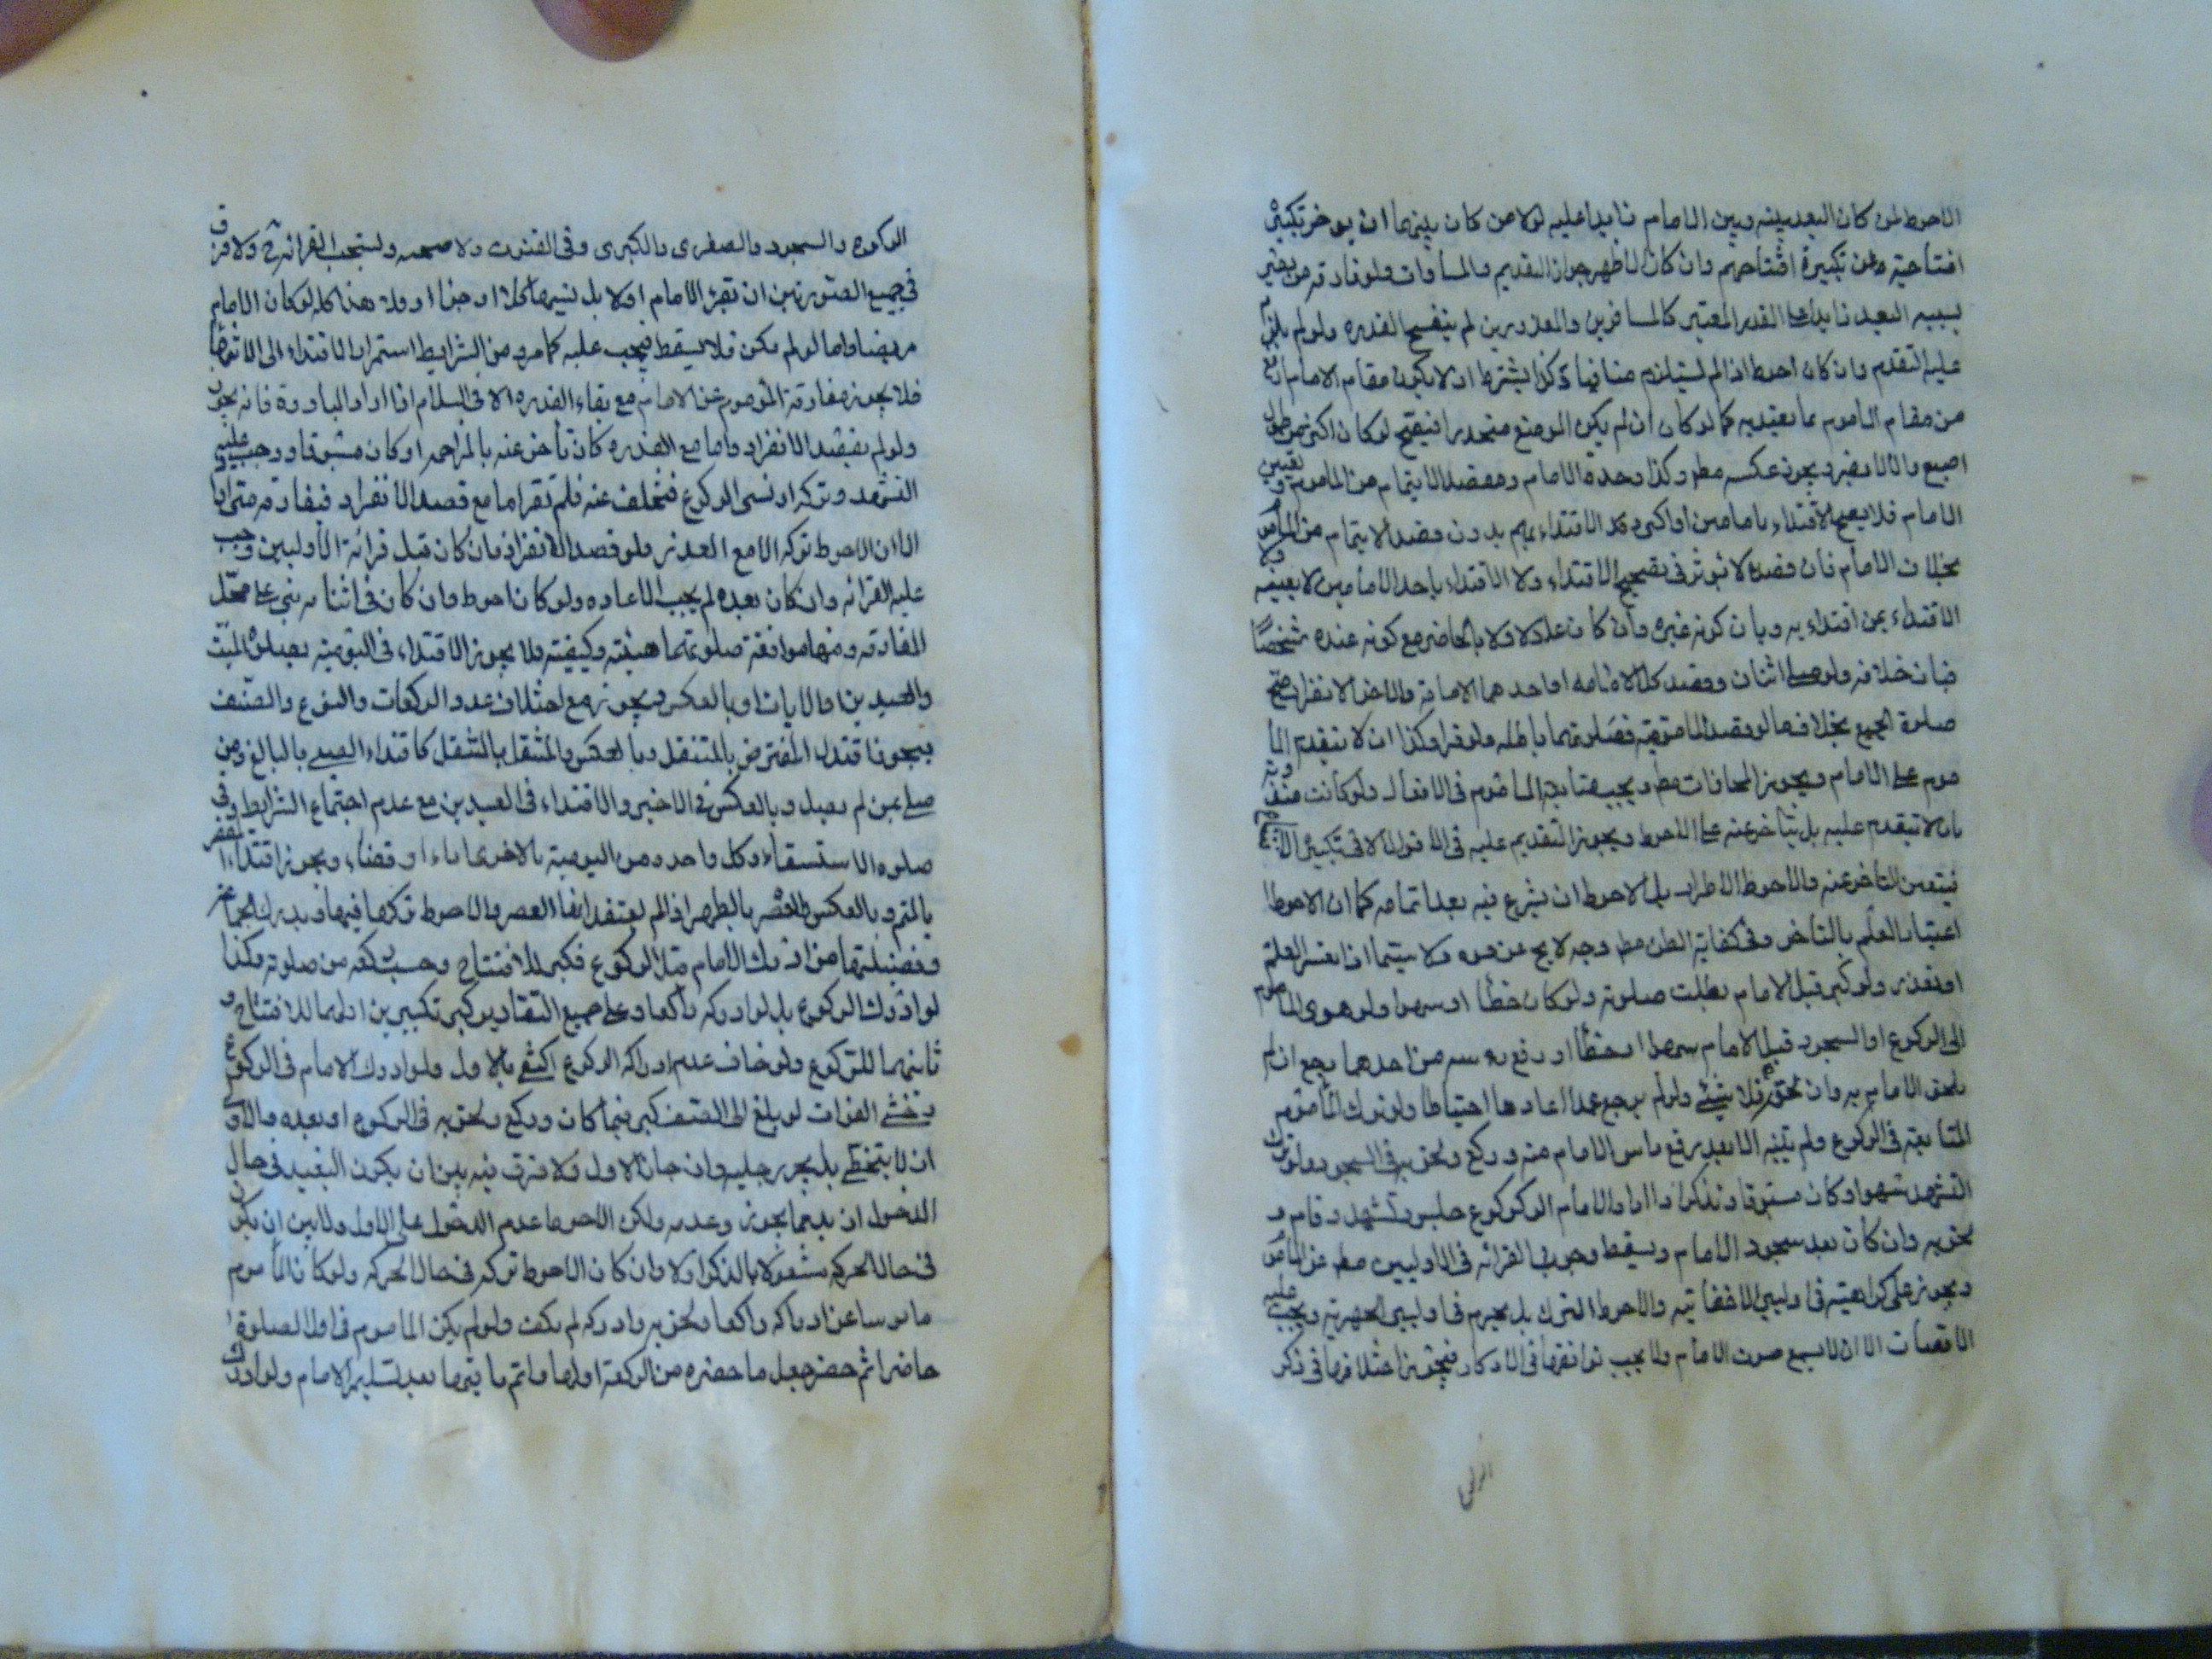 الاحوط لمن كان البعد بينه وبين الامام زايدا عليه لولا من كان بينهما ان يوخر تكبيرة
افتتاحيته عن تكبيرة افتتاحهم وان كان الاظهر جواز التقديم والمساوات ولو فارقه من يصير
بسببه البعد زايدا على القدر المعتبر كالمسافرين والمعذورين لم ينفسخ القدوه ولو لم يلزم
عليه التقدم وان كان احوط اذا لم يستلزم منافيا وكذا يشترط ان لا يكون مقام الامام ارفع
من مقام الماموم بما يعتد به كما لو كان ان لم يكن الموضع منحدرا فيصح لو كان اكثر من طول
اصبع والا لا يضر ويجوز عكسه مط وكذا وحدة الامام وقصد الايتمام من الماموم وتعيين
الامام فلا يصح الاقتداء بامامين او اكثر ولا الاقتداء بهم بدون قصد الايتمام من الماموم
بخلاف الامام فان قصده لا يوثر في تصحيح الاقتداء ولا الاقتداء باحد الامامين لا بعينه ولا
الاقتداء بمن اقتداء به وبان كونه غيره وان كان عدلا ولا بالحاضر مع كونه عنده شخصا
فبان خلافه ولو صلى اثنان وقصد كل الامامه او احدهما الامامة والاخر الانفراد صح
صلوة الجميع بخلاف ما لو قصد المامومية فصلوتهما باطله ولو فرا وكذا ان لا يتقدم الما
موم على الامام ويجوز المحاذات مط ويجب متابعة الماموم في الافعال ولو كانت مندوبة
بان لا يتقدم عليه بل يتاخر عنه على الاحوط ويجوز التقديم عليه في الاقوال الا في تكبيرة الافتتاح
فيتعين التاخر عنه والاحوط الاطراد بل الاحوط ان يشرع فيه بعد اتمامه كما ان الاحوط
اعتبار العلم بالتاخر وفي كفاية الظن مط وجه لا يخ عن قوه ولا سيما اذا تعسر العلم
او تعذر ولو كبر قبل الامام بطلت صلوته ولو كان خطأ او سهوا ولو هوى الماموم
الى الركوع او السجود قبل الامام سهوا او خطأ او رفع راسه من احدهما رجع ان لم
يلحق الامام به وان لحق به فلا شيئ ولو لم يرجع عمدا اعادها احتياطا ولو ترك الماموم
المتابعة في الركوع ولم يتنبه الا بعد رفع راس الامام منه وركع ولحق به في السجود ولو ترك
التشهد سهوا وكان مسبوقا وتذكر واراد الامام الركوع جلس وتشهد وقام و
لحق به وان كان بعد سجود الامام ويسقط وجوب القرائه في الاوليين مط عن الماموم
ويجوز على كراهية في اوليي الاخفاتيه والاحوط الترك بل يحرم في اوليي الجهرية ويجب عليه
الانصات الا ان لا يسمع صوت الامام ولا يجب توافقها في الاذكار فيجوز اختلافها في ذكر
الركوع
الركوع والسجود والصغرى والكبرى وفي القنوت ولا صمته ويستحب القرائه ح ولا فرق
في جميع الصور بين ان تقرء الامام اولا بل نسيها كلا او جزا او ولد هذا كله لو كان الامام
مرضيا واما لو لم يكن فلا يسقط فيجب عليه كما مر ومن الشرايط استمرار الاقتداء الى الانقضا
فلا يجوز مفارقة الماموم عن الامام مع بقاء القدوه الا في السلام اذا اراد المبادرة فانه يجوز
ولو لم يقصد الانفراد واما مع القدوه كان تأخر عنه بالمزاحمه او كان مسبوقا ووجب عليه
التشهد وتركه او نسى الركوع فتخلف عنه فلم تقرا ما مع قصد الانفراد فيفارقه متى اراد
الا ان الاحوط تركه الا مع العذر ولو قصد الانفراد فان كان قبل قرائة الاوليين وجب
عليه القرائه وان كان بعده لم يجب الاعاده ولو كان احوط وان كان في اثنائه بنى على محل
المفارقه ومنها موافقة صلوتهما هيئة وكيفية فلا يجوز الاقتداء في اليومية بصلوة الميت
والعيدين والايات او بالعكس ويجوز مع اختلاف عدد الركعات والنوع والصنف
فيجوز اقتداء المفترض بالمتنفل وبالعكس والمتنفل بالمتنفل كاقتداء الصبي بالبالغ ومن
صلى بمن لم يصل وبالعكس في الاخير والاقتداء في العيدين مع عدم اجتماع الشرايط وفي
صلوه الاستسقاء وكل واحده من اليومية بالاخرى اداءا وقضاء ويجوز اقتداء القصر
بالمتم وبالعكس والعصر بالظهر اذا لم يعتقد انها العصر والاحوط تركها فيها ويدرك الجماعة
وفضيلتها من ادرك الامام قبل الركوع فكبر للافتتاح وحسب ركعه من صلوته وكذا
لو ادرك الركوع بل لو ادركه راكعا وعلى جميع التقادير كبر تكبيرين اولهما للافتتاح و
ثانيهما للركوع ولو خاف عدم ادراكه الركوع اكتفى بالاول ولو ادرك الامام في الركوع
وخشى الفوات لو بلغ الى الصف كبر فيما كان وركع ولحق به في الركوع او بعده والاولى
ان لا يتخطى بل يجر رجليه وان جاز الاول ولا فرق فيه بين ان يكون البعيد في حال
الدخول ان بدبما يجوز وعدمه ولكن الاحوط عدم الدخول على الاول ولا بين ان يكون
في حال الحركه مشغولا بالذكر اولا وان كان الاحوط تركه في حال الحركه ولو كان الماموم
مايوسا عن ادراكه راكعا ولحق به وادركه لم يكف ولو لم يكن الماموم في اول الصلوة
حاضرا ثم حضر جعل ما حضره من الركعة اولها واتم ما بقيها بعد تسليم الامام ولو ادرك